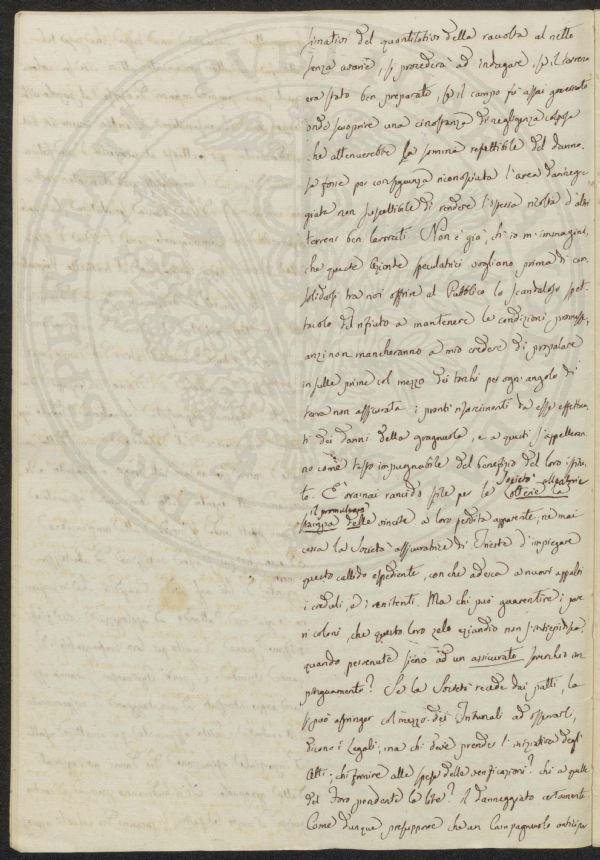 timativi del quantitativo della raccolta al netto
senza avarie, si procederà ad indagare, se il terreno
era stato ben preparato, se il campo fu assai governato
onde scoprire una circostanza di negligenza colposa
che attenuerebbe la somma rispettibile del danno.
se forse per conseguenza riconosciuta l'area danneg-
giata non suscettibile di rendere l'istessa ricolta d'altri
terreni ben lavorati. Non è già, ch'io m'immagini,
che queste Giunte speculatrici vogliano prima di con
solidarsi tra noi offrire al Pubblico lo scandaloso spet-
tacolo del rifiuto a mantenere le condizioni promesse,
anzi non mancheranno a mio credere di propalare
in sulle prime col mezzo dei torchi per ogni angolo di
terra non assicurata i pronti risarcimenti da esse effettua
ti dei danni della gragnuola, e a questi s'appelleran
no come testo impugnabile del benefizio del loro istitu
to. È oramai rancido stile per le Società
il promulgare
delle vincite a loro perdita apparente, ne mai
cessa la Società assicuratrice di Trieste d'impiegare
questo callido espediente, con che adesca a nuovi appalti
i creduli, e i renitenti. Ma chi può guarentire i pove
ri coloni, che questo loro zelo eziandio non s'intiepidisca,
quando pervenute sieno ad un assicurato
pinguamento? Se la Società recede dai patti, la
si può astringer col mezzo dei Tribunali ad osservarli,
dicono i Legali, ma chi deve prender l'iniziativa degli
Atti; chi fornire alle spese delle verificazioni? chi a quelle
del Foro pendente la lite? il danneggiato certamente
Come dunque presupporre che un Campagnuolo anticipi